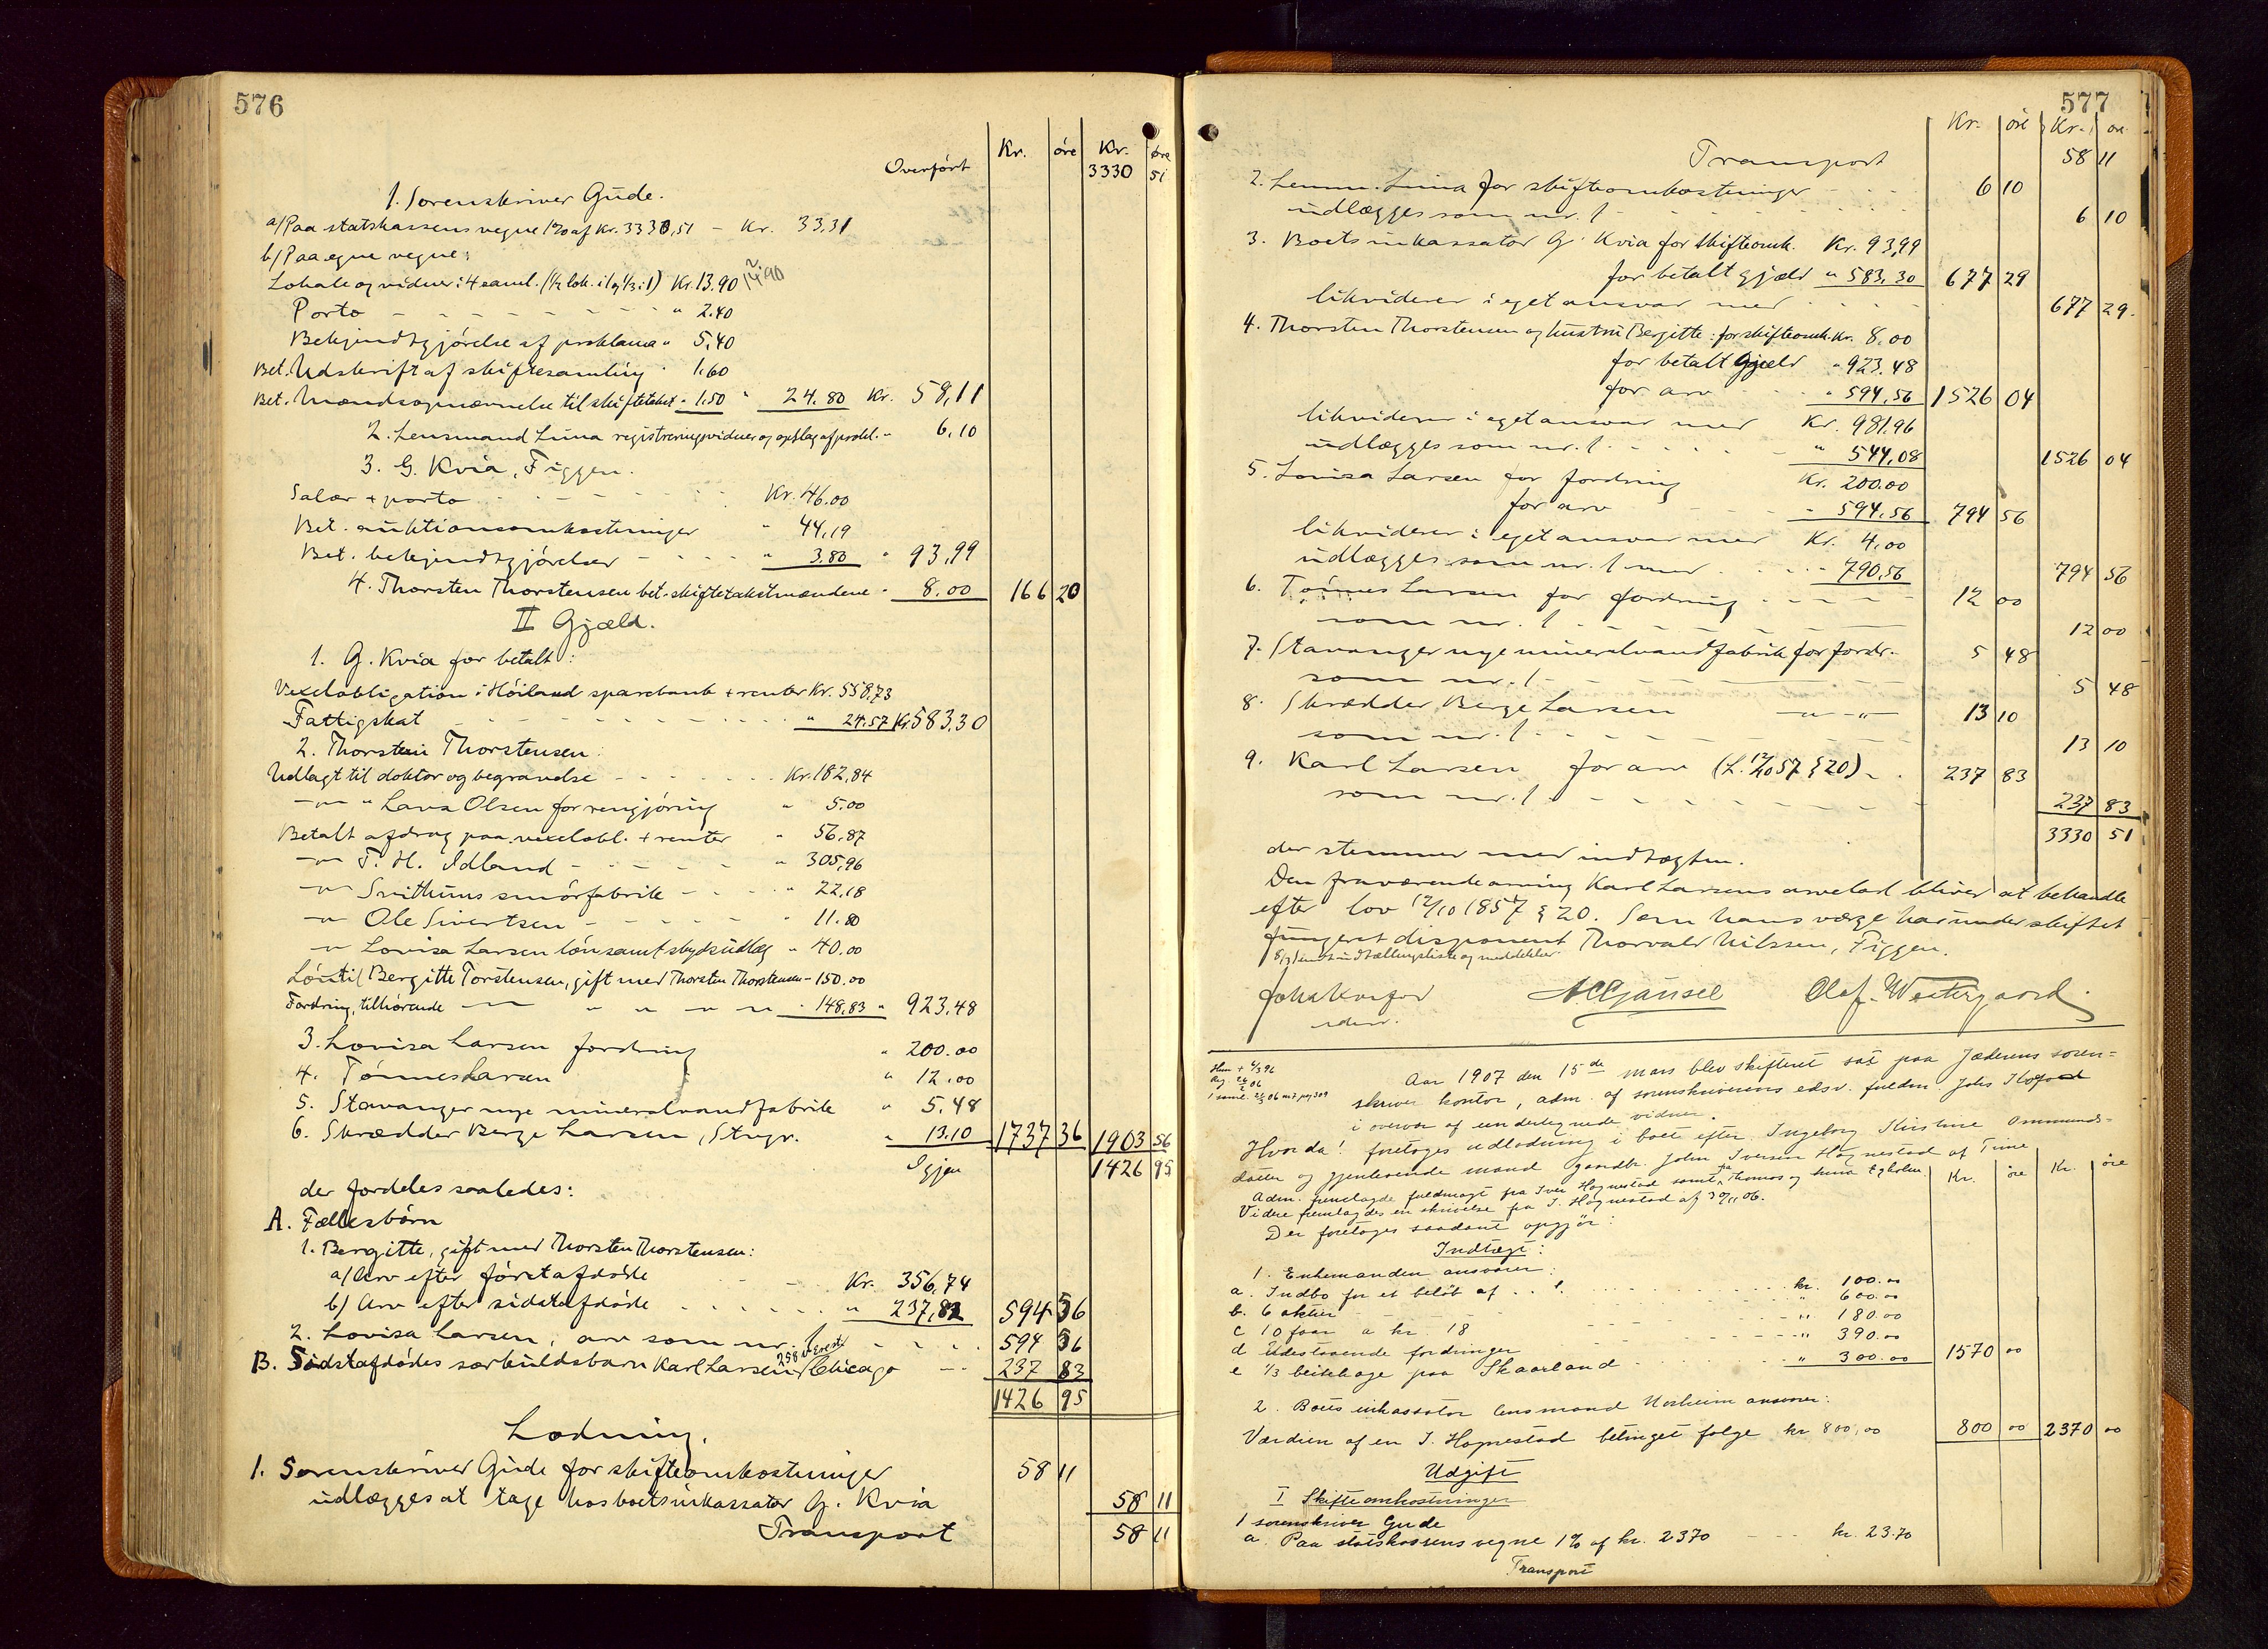 576
Kr. øre Kr. øre
Overført 3330 51
1. Sorenskriver Gude.
a/ Paa statskassens vegne 1% af Kr. 3330,51 - Kr. 33,31
b/ Paa egne vegne:
Lokale og vidner i 4 saml. (1/2 lok. i 1 og 1/3 i 1) Kr. 13.90
Porto - - - " 2.40
Bekjendtgjørelse af proklama " 5,40
Bet. Udskrift af skiftesamling " 1.60
Bet. Mændsopnævnelse til skiftetakst " 1.50 " 24.80 Kr. 58,11
2. Lensmand Lima registreringsvidner og opslag af prokl. " 6.10
3. G. Kvia, Figgen.
Salær + porto - - - Kr. 46.00
Bet. auktionsomkostninger " 44,19
Bet. bekjendtgjørelser - - - " 3.80 " 93,99
4. Thorsten Thorstensen bet. skiftetakstmændene " 8.00 166 20
II Gjæld.
1. G. Kvia for betalt:
Vexelobligation i Høiland sparebank + renter Kr. 558,73
Fattigskat - - - " 24.57 Kr. 583,30
2. Thorstein Thorstensen:
Udlagt til doktor og begravelse - - - Kr. 182,84
-"- " Lava Olsen for rengjøring " 5.00
Betalt afdrag paa vexelobl. + renter " 56,87
-"- T. H. Idland - - - " 305,96
-"- Svithuns smørfabrik - - - " 22,18
-"- Ole Sivertsen - - - " 11.80
-"- Lovisa Larsen løn samt skydsudlæg " 40.00
Løn til Bergitte Torstensen, gift med Thorsten Thorstensen - 150.00
Fordring, tilhørende -"- " " " " " 148,83 " 923,48
3. Lovisa Larsen fordring " 200.00
4. Tønnes Larsen " 12.00
5. Stavanger nye mineralvandfabrik " 5.48
6. Skrædder Berge Larsen, Stvgr. " 13.10 1737 36 1903 56
Igjen 1426 95
der fordeles saaledes:
A. Fællesbörn
1. Bergitte, gift med Thorsten Thorstensen:
a/ Arv efter førstafdøde - - - Kr. 356,74
b/ Arv efter sidstafdøde - - - " 237,82 594 56
2. Lovisa Larsen, arv som nr. 1 - - - 594 56
B. Sidstafdødes særkuldsbarn Karl Larsen, Chicago - - 237 83
1426 95
Lodning.
1. Sorenskriver Gude for skifteomkostninger 58 11
udlægges at tage hos boets inkassator G. Kvia 58 11
Transport 58 11
577
Kr. øre Kr. øre
Transport 58 11
2. Lensm. Lima for skifteomkostninger - - - 6 10
udlægges som nr. 1 - - - 6 10
3. Boets inkassator G. Kvia for skifteomk. Kr. 93,99
for betalt gjæld " 583,30 677 29
likviderer i eget ansvar med - - - 677 29.
4. Thorsten Thorstensen og hustru Bergitte: for skifteomk. Kr. 8.00
for betalt gjæld " 923.48
for arv " 594,56 1526 04
likviderer i eget ansvar med Kr. 981,96
udlægges som nr. 1 - - - " 544,08 1526 04
5. Lovisa Larsen for fordring Kr. 200.00
for arv - - " 594,56 794 56
likviderer i eget ansvar med Kr. 4,00
udlægges som nr. 1 med - - - 790,56 794 56
6. Tønnes Larsen for fordring - - - 12 00
som nr. 1 - - - 12 00
7. Stavanger nye mineralvandfabrik for fordr. - 5 48
som nr. 1 - - - 5 48
8. Skrædder Berge Larsen -"- 13 10
som nr. 1 - - - 13 10
9. Karl Larsen for arv (L. 12/10 57 § 20) - 237 83
som nr. 1 - - - 237 83
3330 51
der stemmer med indtægten.
Den fraværende arving Karl Larsens arvelod bliver at behandle
efter lov 12/10 1857 § 20. Som hans værge har under skiftet
fungeret disponent Thorvald Nilssen, Figgen.
Olaf Westergaard
Aar 1907 den 15de mars blev skifteret sat paa Jæderens soren=
skriver kontor, adm. af sorenskriverens edsv. fuldm. Johs
i overvær af undertegnede vidner.
Hvorda! foretoges udlodning i boet efter Ingeborg Kristine Ommunds-
datter og gjenlevende mand gaardbr. John Iversen Høgnestad af Time
Adm. fremlagde fuldmagt fra Iver Høgnestad samt fra Thomas og
Videre fremlagdes en skrivelse fra J. Høgnestad af 30/11 06.
Der foretoges saadant opgjør:
Kr. øre Kr. øre
Indtægt:
1. Enkemanden ansvarer:
a. Indbo for et beløb af - - - kr. 100.00
b. 6 aktier - - - " 600.00
c 10 faar a kr. 18 - - - " 180.00
d Udestaaende fordringer - - - " 390.00
e 1/3 beitehage paa Skaarland - - - " 300.00 1570 00
2. Boets inkassator lensmand ansvarer:
Værdien af en J. Høgnestad betinget følge kr 800,00 800 00 2370 00
Udgift
I Skifteomkostninger
1 sorenskriver Gude
a. Paa statskassens vegne 1% af kr. 2370 - - - kr. 23.70
Transport